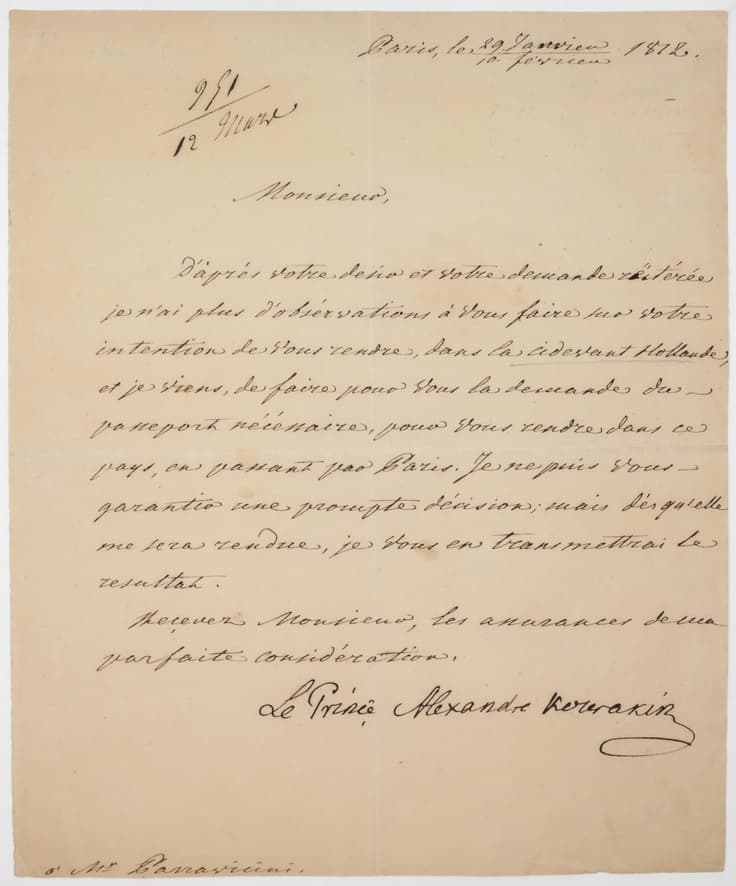 Paris, le 29 Janvier / 10 février 1812.
951
12 Mars
Monsieur,
D'après votre desir et votre demande réitérée
je n'ai plus d'observations à vous faire sur votre
intention de vous rendre, dans la cidevant Hollande,
et je viens, de faire pour vous la demande du
passeport nécéssaire, pour vous rendre dans ce
pays, en passant par Paris. Je ne puis vous
garantir une prompte décision; mais dès qu'elle
me sera rendue, je vous en transmettrai le
resultat.
Reçevez Monsieur, les assurances de ma
parfaite considération.
Le Prince Alexandre Kourakin
à Mr Parravicini.